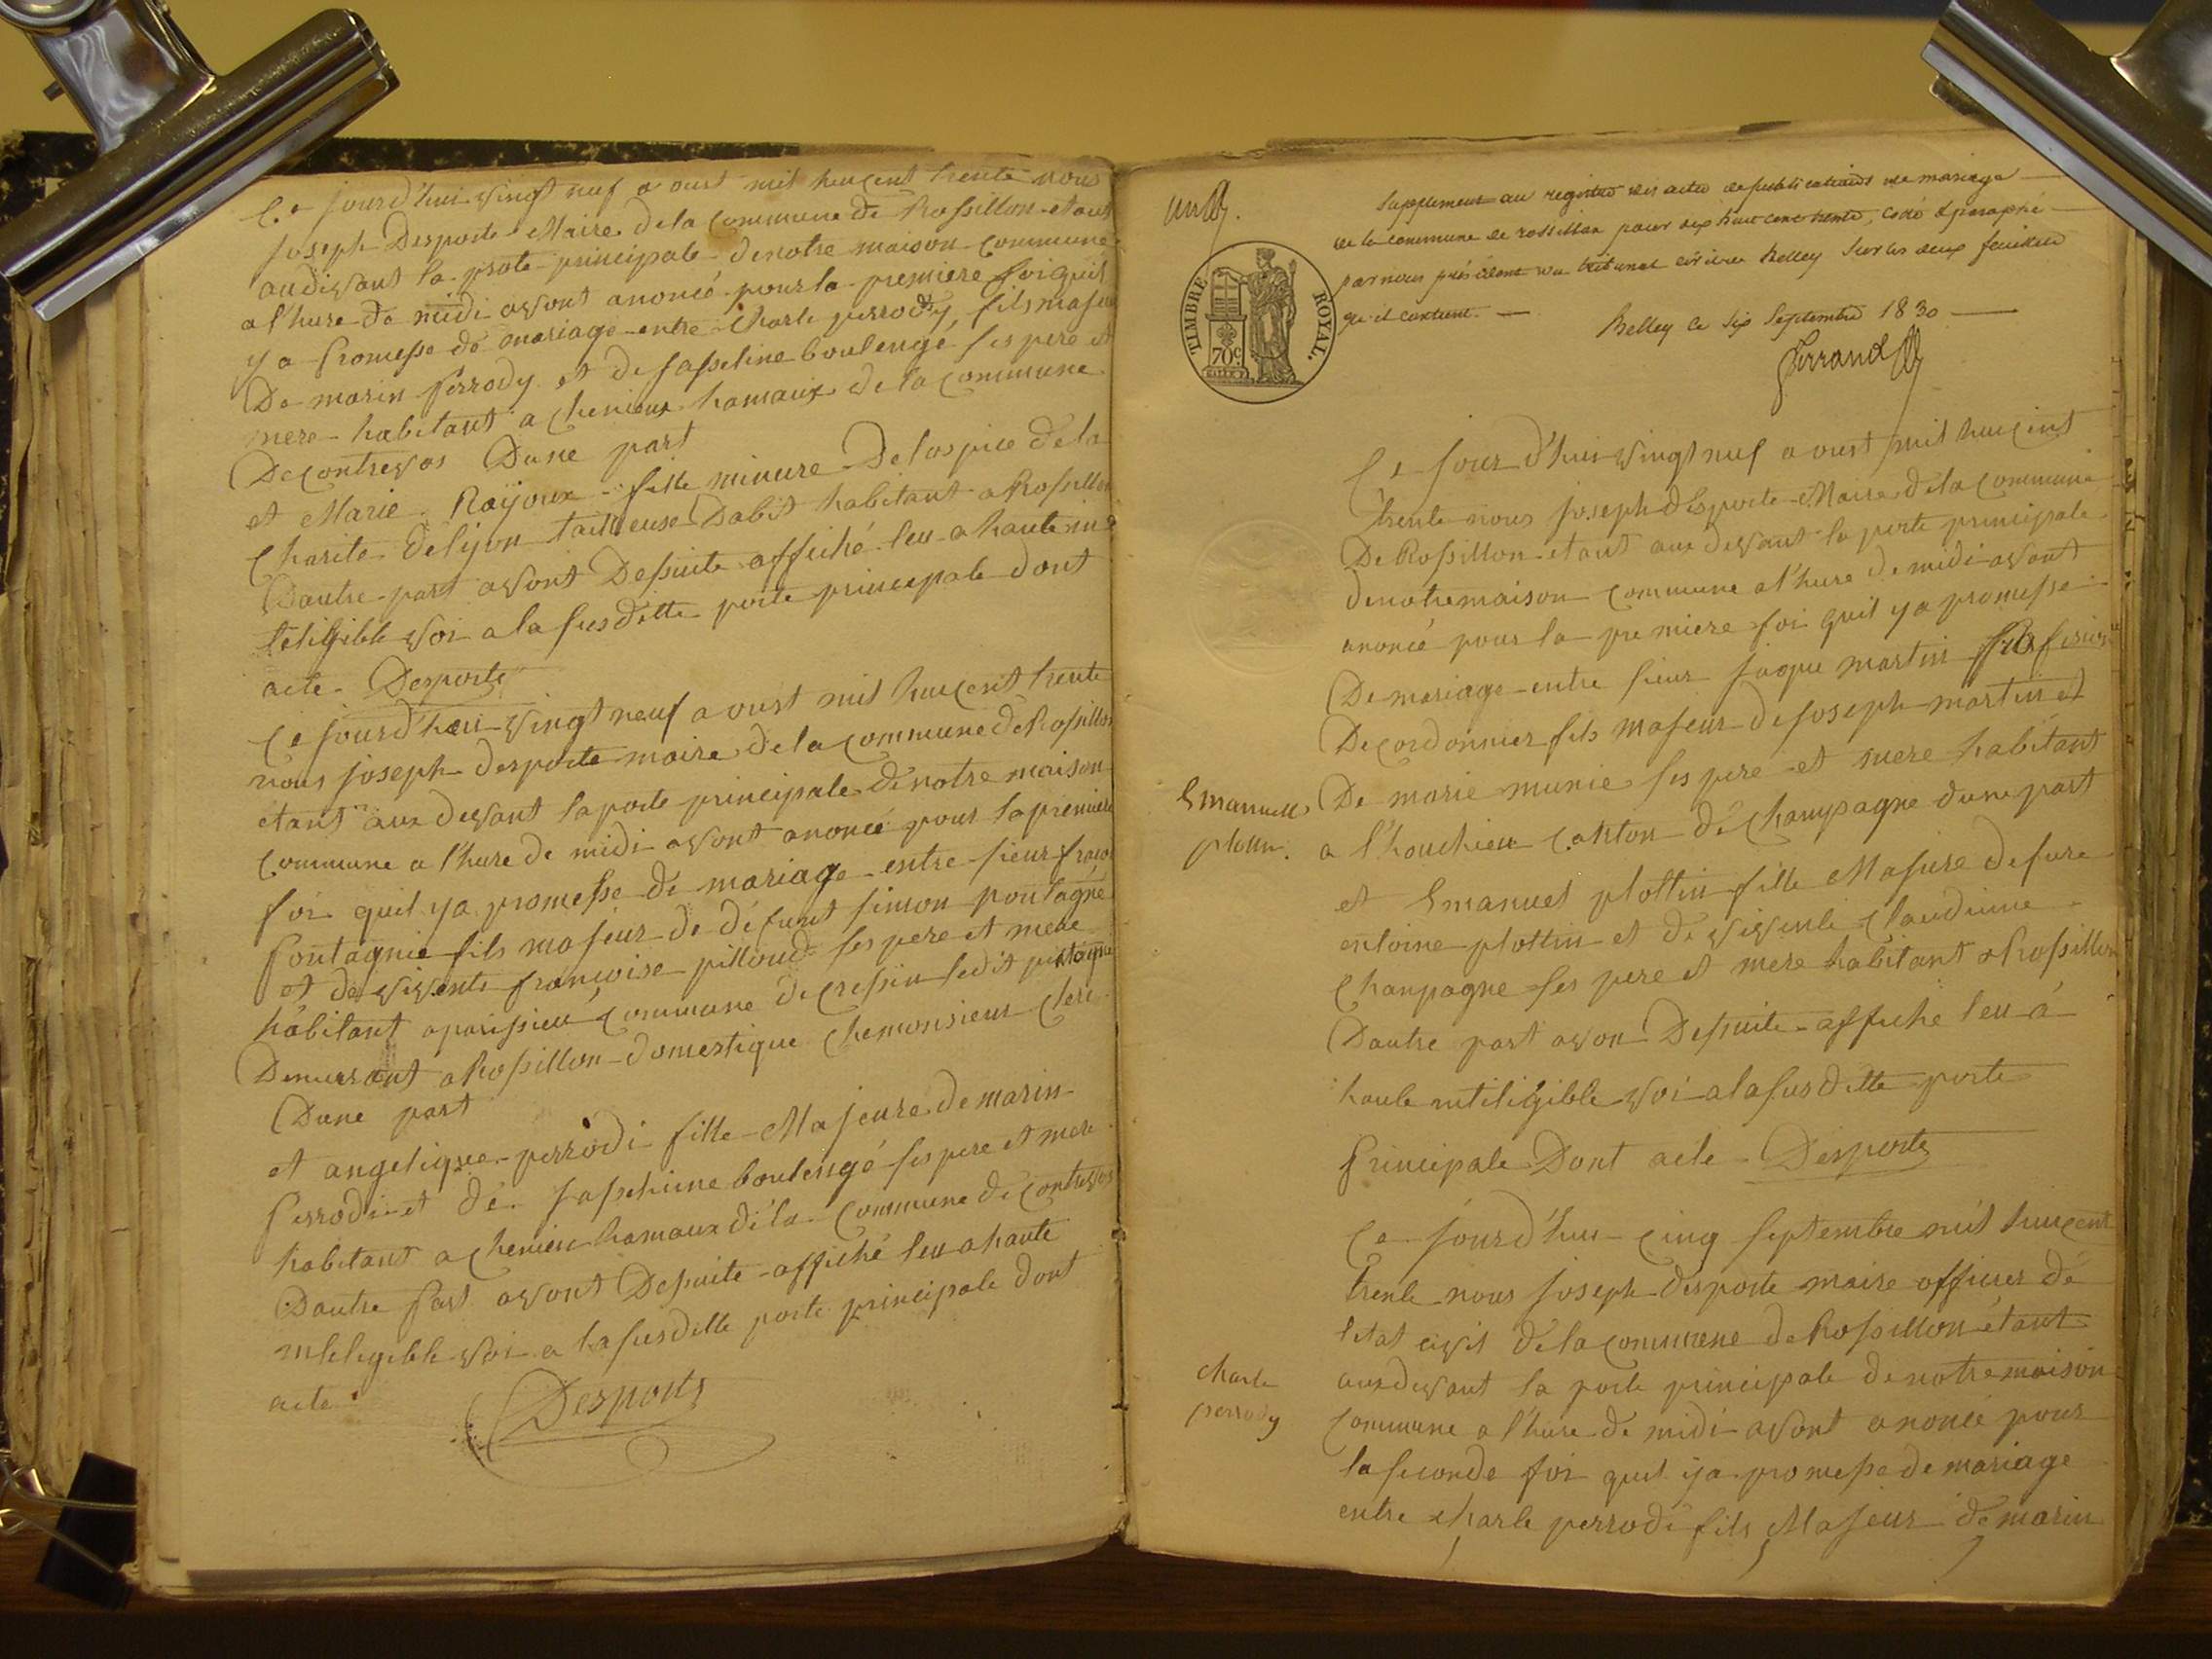 Ce jourd'hui vingt neuf a oust mil huicent trente nous
joseph Desporte Maire de la Commune de Rossillon etant
audivant la prote principale de notre maison Commune
a l'hure de midi avont anoncé pour la premiere foi quil
y a Promesse de mariage entre Charle perrody fils majeur
De marin Perrody et de Josseline boulengé ses pere et
mere habitant a Chenieux hamaux de la Commune
De contrevos Dune part
et Marie Rayoux fille minure De lospice de la
Charite de lyon tailleuse Dabit habitant a Rossillon
Dautre part avont De suite affiché leu a haute
teligible voi a la susditte porte principale dont
acte Desporte
Ce jourd'hui vingt neuf a oust mil huicent trente
nous joseph desporte maire de la Commune de Rossillon
etant aux devant la porte principale de notre maison
Commune a l'hure de midi avont anoncé pour la premiere
foi quil y a promesse de mariage entre sieur
Pontagnie fils majeur de défunt simon pontagné
et de vivente françoise pilloud ses pere et mere
habitant a parissieu Commune de cressin ledit
Demurant a Rossillon domestique Che monsieur Clerc
Dune part
et angelique perrodi fille Majeure de marin
Perrodi et dé boulengé ses pere et mere
habitant a Chenieu hamaux de la Commune de Contrevos
Dautre Part avont De suite affiché leu a haute
intelegible voi a la susditte porte principale dont
acte Desporte
un
Supplement au registre des actes de publications de mariage
de la commune de rossillon pour dix huit cent trente, coté & paraphé
par nous président du tribunal civil de Belley sur les deux feuilles
qu'il contient.
Belley le six Septembre 1830
Ferrand
TIMBRE ROYAL.
70c
Ce jour d'hui vingt neuf a oust mil huicent
trente nous joseph desporte Maire de la Commune
De Rossillon etant aux devant la porte principale
de notre maison Commune a l'hure de midi avont
anoncé pour la premiere foi quil y a promesse
De mariage entre sieur jaque martin
De cordonnier fils majeur de joseph martin et
De marie munie ses pere et mere habitant
a l'houchieu Canton de Champagne dune part
et Emanuel plottin fille Majure de
entoine plottin et de vivente Claudinne
Chanpagne ses pere et mere habitant a Rossillon
Dautre part avon De suite affiché leu à
haute intiligible voi a la susditte porte
Principale Dont acte Desporte
Emanuelle
plottin.
Ce jourd'hui cinq Septembre mil huicent
trente nous joseph desporte maire officier de
letat civil de la Commune de Rossillon étant
aux devant la porte principale de notre maison
Commune a l'hure de midi avont anoncé pour
la seconde foi quil y a promesse de mariage
entre Charle perrodi fils Majeur de marin
Charle
perrody